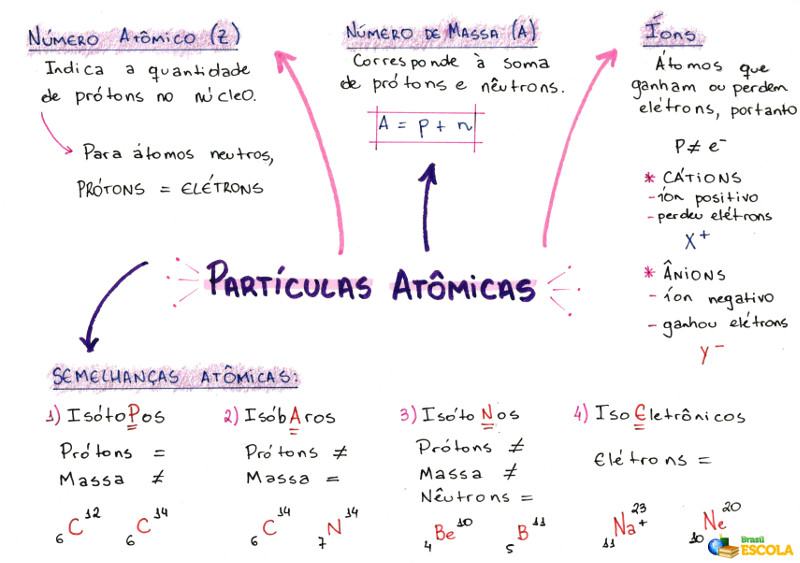 NÚMERO ATÔMICO (Z)
Indica a quantidade
de prótons no núcleo.
Para átomos neutros,
PRÓTONS = ELÉTRONS
NÚMERO DE MASSA (A)
Corresponde à soma
de prótons e nêutrons.
A = p + n
Íons
Átomos que
ganham ou perdem
elétrons, portanto
P ≠ e⁻
* CÁTIONS
- íon positivo
- perdeu elétrons
X⁺
* ÂNIONS
- íon negativo
- ganhou elétrons
Y⁻
PARTÍCULAS ATÔMICAS
SEMELHANÇAS ATÔMICAS:
1) IsótoPos
Prótons =
Massa ≠
₆C¹² ₆C¹⁴
2) IsóbAros
Prótons ≠
Massa =
₆C¹⁴ ₇N¹⁴
3) IsótoNos
Prótons ≠
Massa ≠
Nêutrons =
₄Be¹⁰ ₅B¹¹
4) IsoEletrônicos
Elétrons =
₁₁Na²³₊ ₁₀Ne²⁰
Brasil
ESCOLA